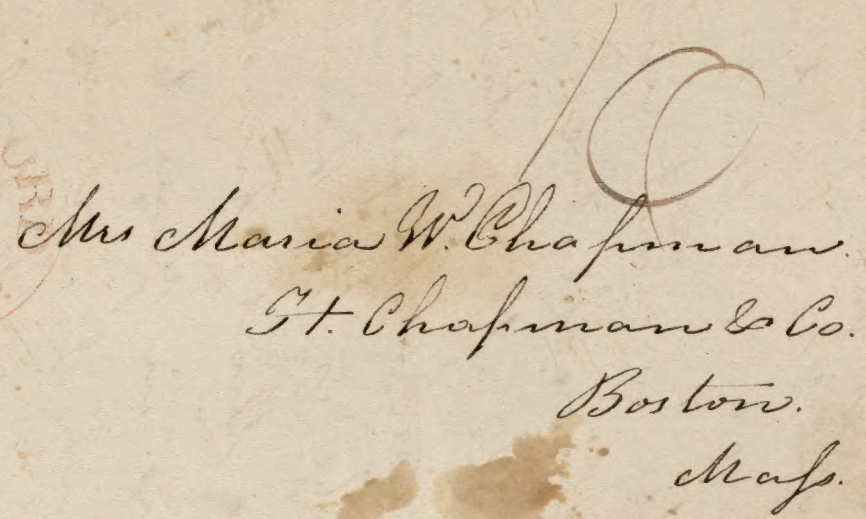 10
Mrs Maria W. Chapman.
H. Chapman & Co.
Boston.
Mass.